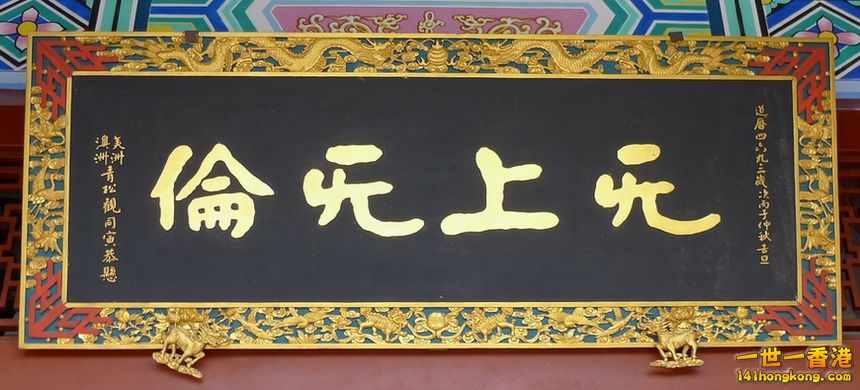 道曆四六九三歲次丙子仲秋吉旦
无上无倫
美洲
澳洲
青松觀同寅恭懸
一世一香港
141hongkong.com